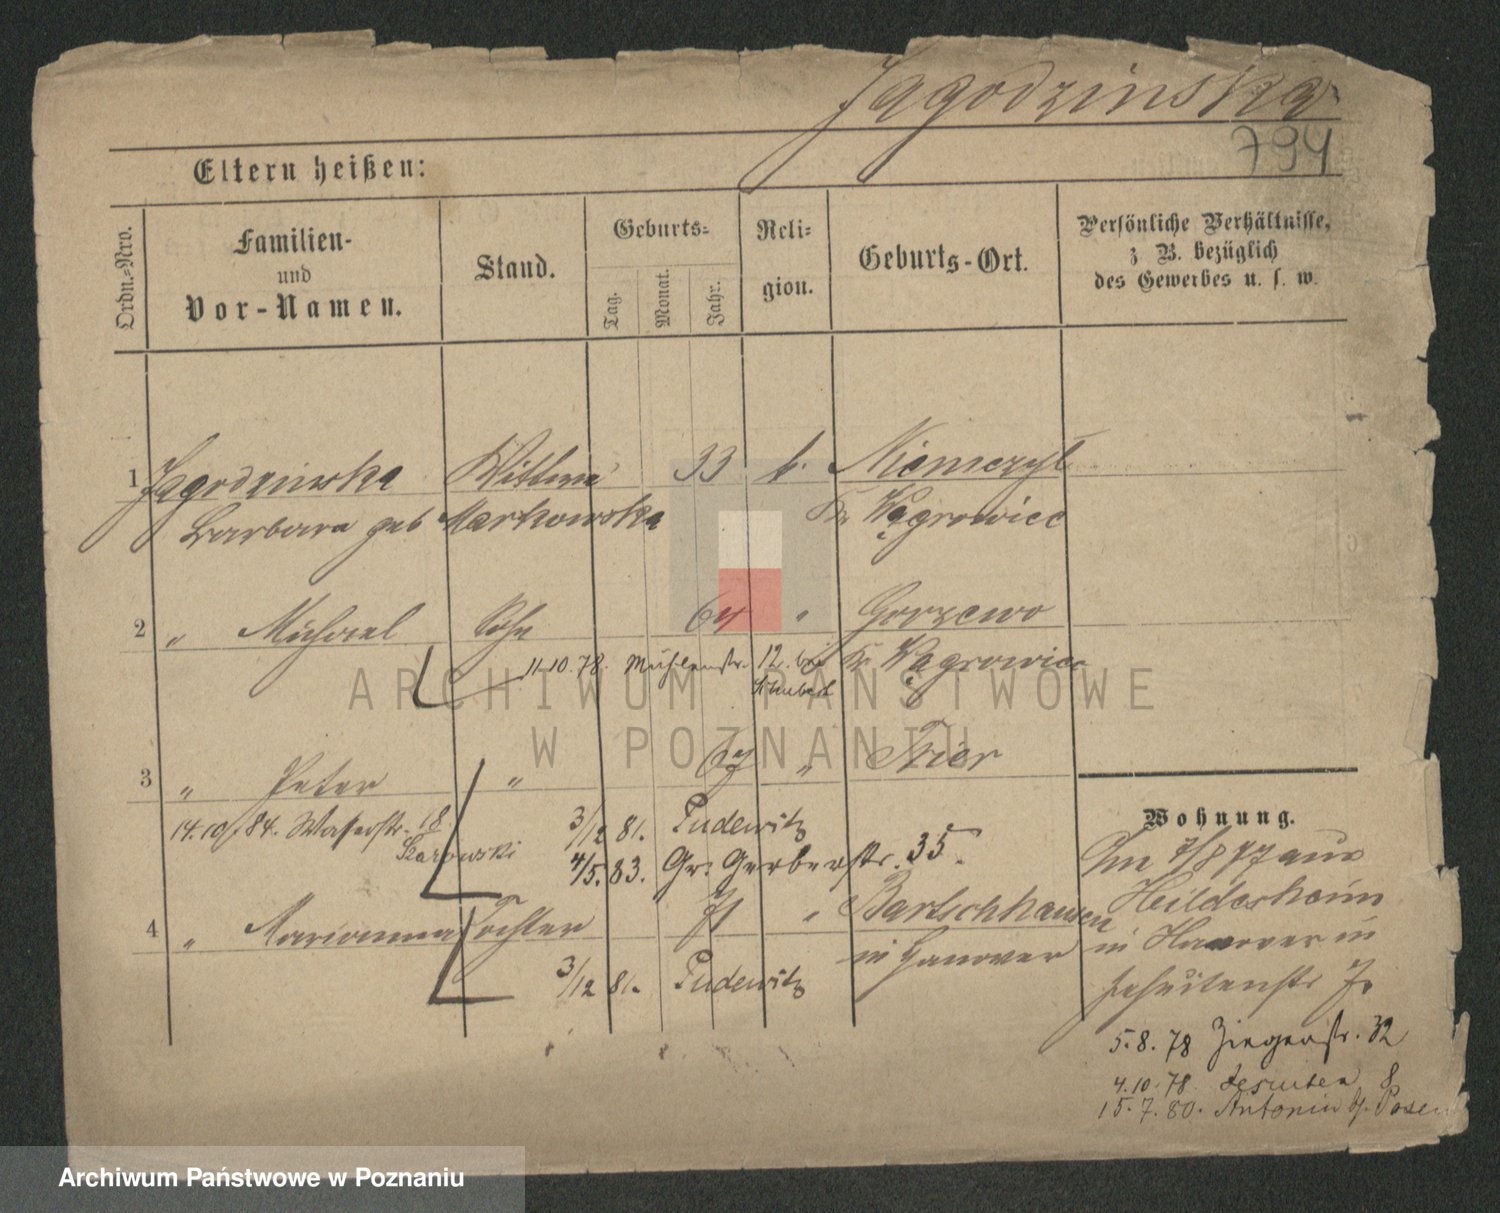 Jagodzinska
794
Eltern heißen:
Ordn.=Nro.
Familien- und Vor-Namen.
Stand.
Geburts=
Tag. Monat. Jahr.
Reli= gion.
Geburts-Ort.
Persönliche Verhältnisse, z B. bezüglich des Gewerbes u. s. w.
1 Jagodzinska Wittwe 33 k. Niemczyk
Barbara geb Markowska Kr Wągrowiec
2 " Michael Sohn 64 " Gorzewo
11.10.78. Mühlenstr. 12. bei Kr Wągrowiec
3 " Peter " 67 " Trier
14.10.84. Wasserstr. 18
3/12 81. Pudewitz
4/5. 83. Gr. Gerberstr. 35.
4 " Marianna Tochter 71 " Bartschhausen
in Hanover
3/12 81. Pudewitz
Wohnung.
Am 7/8 77 aus
Hildesheim
in Hanover in
Jesuitenstr
5.8.78 Ziegenstr. 32
4.10.78. Jesuiten 8
15.7.80. Antonin b/. Posen
ARCHIWUM PAŃSTWOWE
W POZNANIU
Archiwum Państwowe w Poznaniu